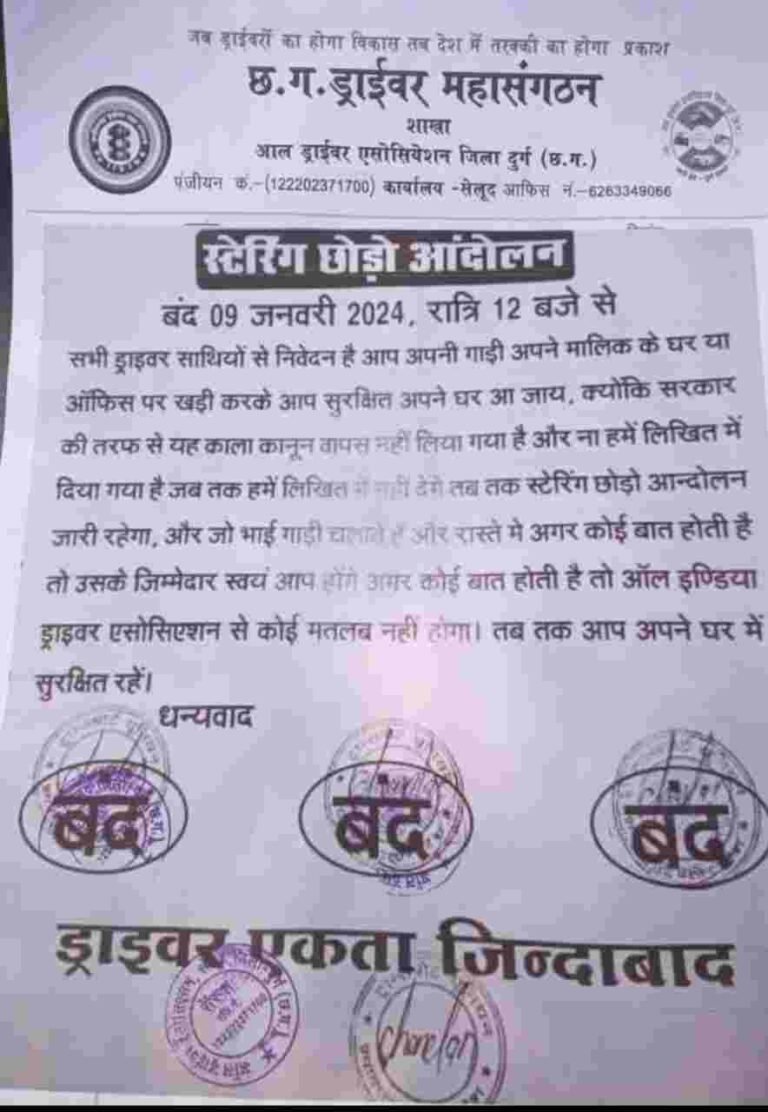 जब ड्राईवरों का होगा विकास तब देश में तरक्की का होगा प्रकाश
छ.ग.ड्राईवर महासंगठन
शाखा
आल ड्राईवर एसोसियेशन जिला दुर्ग (छ.ग.)
पंजीयन कं.-(122202371700) कार्यालय -सेलूद आफिस नं.-6263349066
स्टेरिंग छोड़ो आंदोलन
बंद 09 जनवरी 2024, रात्रि 12 बजे से
सभी ड्राइवर साथियों से निवेदन है आप अपनी गाड़ी अपने मालिक के घर या
ऑफिस पर खड़ी करके आप सुरक्षित अपने घर आ जाय, क्योंकि सरकार
की तरफ से यह काला कानून वापस नहीं लिया गया है और ना हमें लिखित में
दिया गया है जब तक हमें लिखित में नहीं देंगे तब तक स्टेरिंग छोड़ो आन्दोलन
जारी रहेगा, और जो भाई गाड़ी चलाते है और रास्ते मे अगर कोई बात होती है
तो उसके जिम्मेदार स्वयं आप होंगे अगर कोई बात होती है तो ऑल इण्डिया
ड्राइवर एसोसिएशन से कोई मतलब नहीं होगा। तब तक आप अपने घर में
सुरक्षित रहें।
धन्यवाद
बंद बंद बंद
ड्राइवर एकता जिन्दाबाद